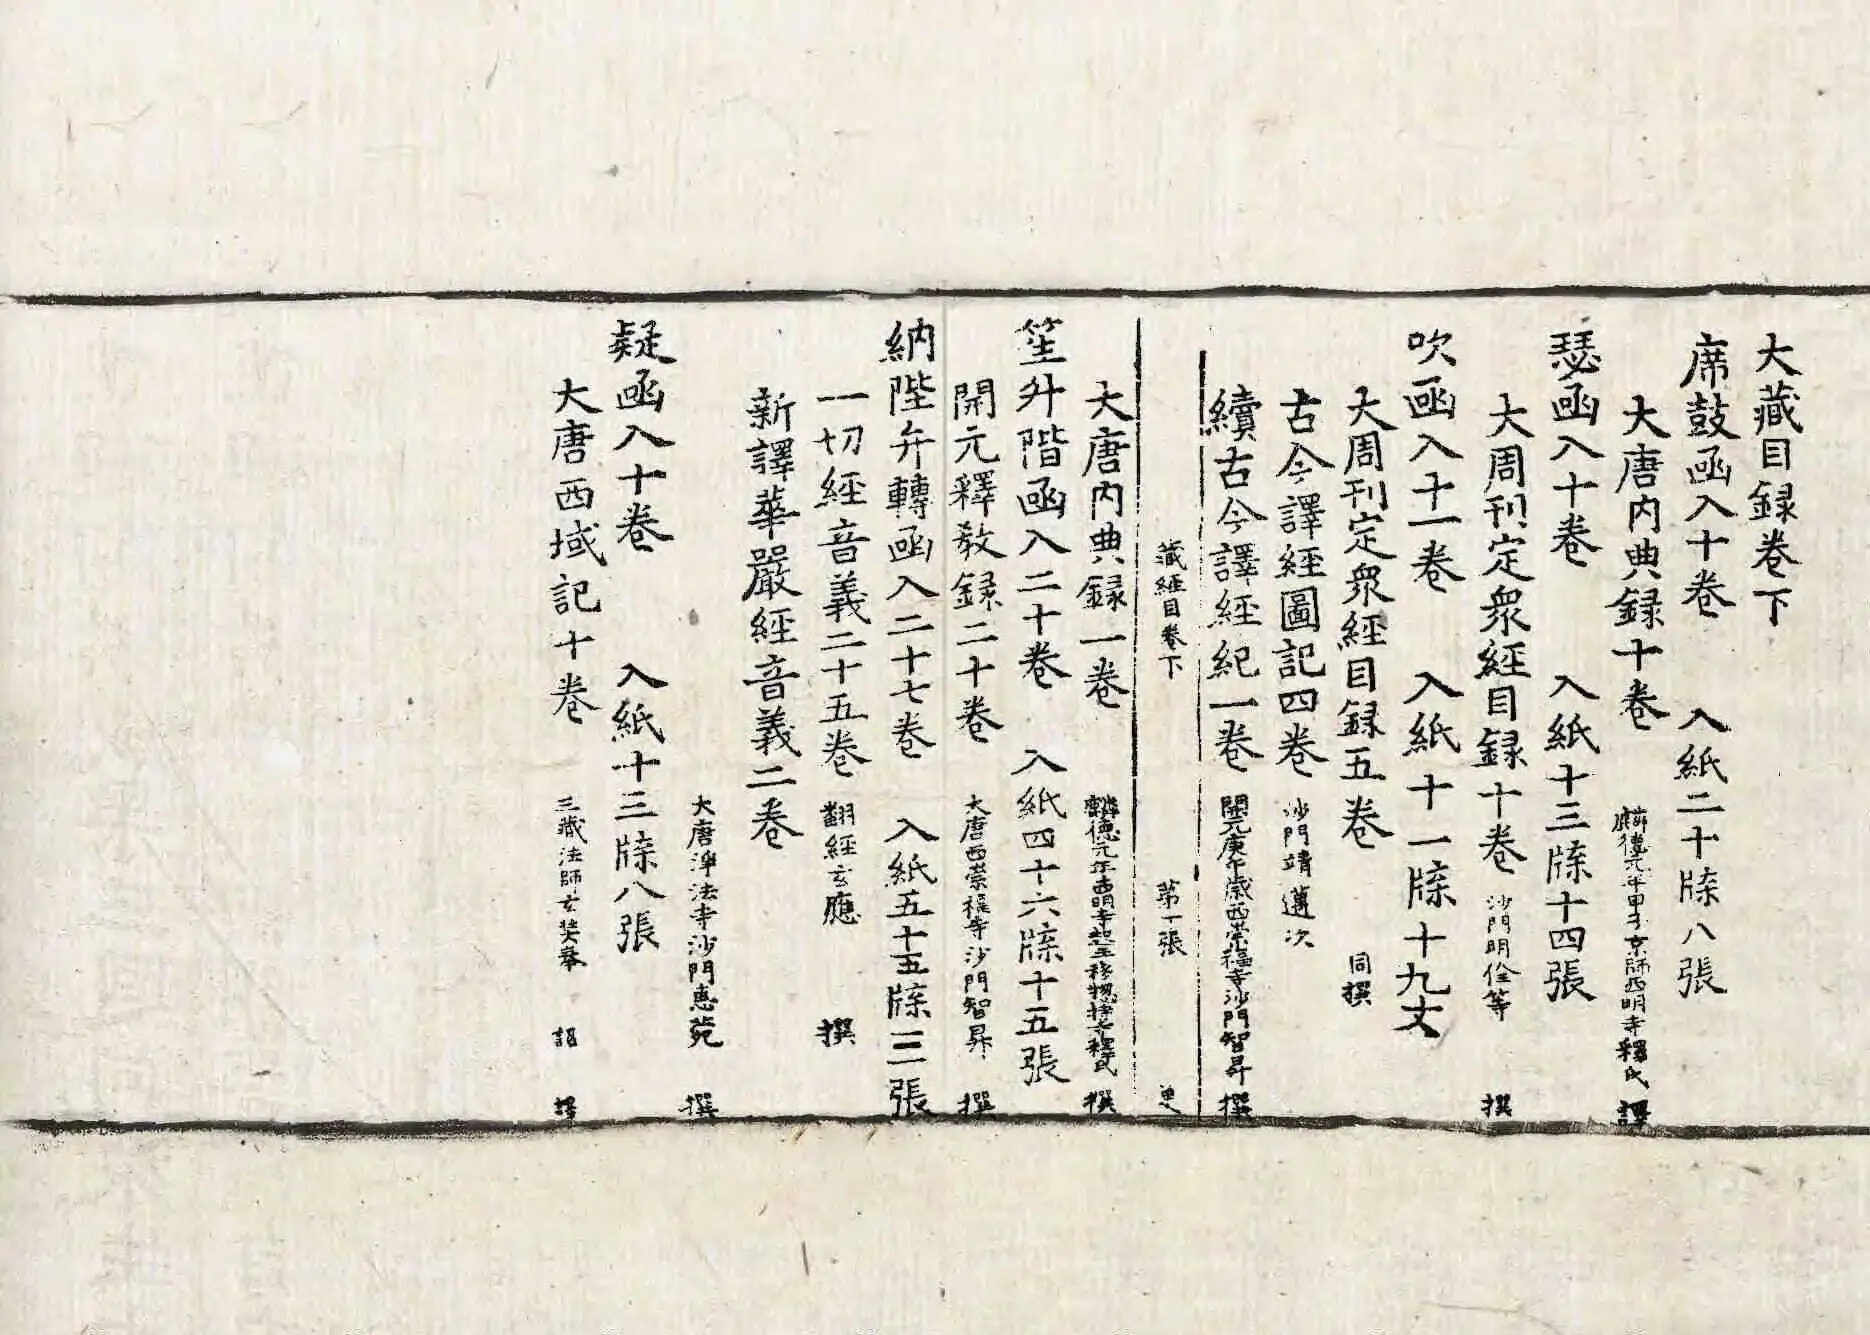 大藏目録卷下
席鼓函入十卷 入紙二十牒八張
大唐內典録十卷 麟德元年甲子京師西明寺釋氏 譯
瑟函入十卷 入紙十三牒十四張
大周刊定衆經目録十卷 沙門明佺等 撰
吹函入十一卷 入紙十一牒十九丈
大周刊定衆經目録五卷 同撰
古今譯經圖記四卷 沙門靖邁次
續古今譯經紀一卷 開元庚午歲西崇福寺沙門智昇 撰
藏經目卷下 第一張 更
大唐內典録一卷 麟德元年西明寺 釋氏 撰
笙升階函入二十卷 入紙四十六牒十五張
開元釋教録二十卷 大唐西崇福寺沙門智昇 撰
納陛弁轉函入二十七卷 入紙五十五牒三張
一切經音義二十五卷 翻經玄應 撰
新譯華嚴經音義二卷
大唐淨法寺沙門惠菀 撰
疑函入十卷 入紙十三牒八張
大唐西域記十卷 三藏法師玄奘奉 詔 譯